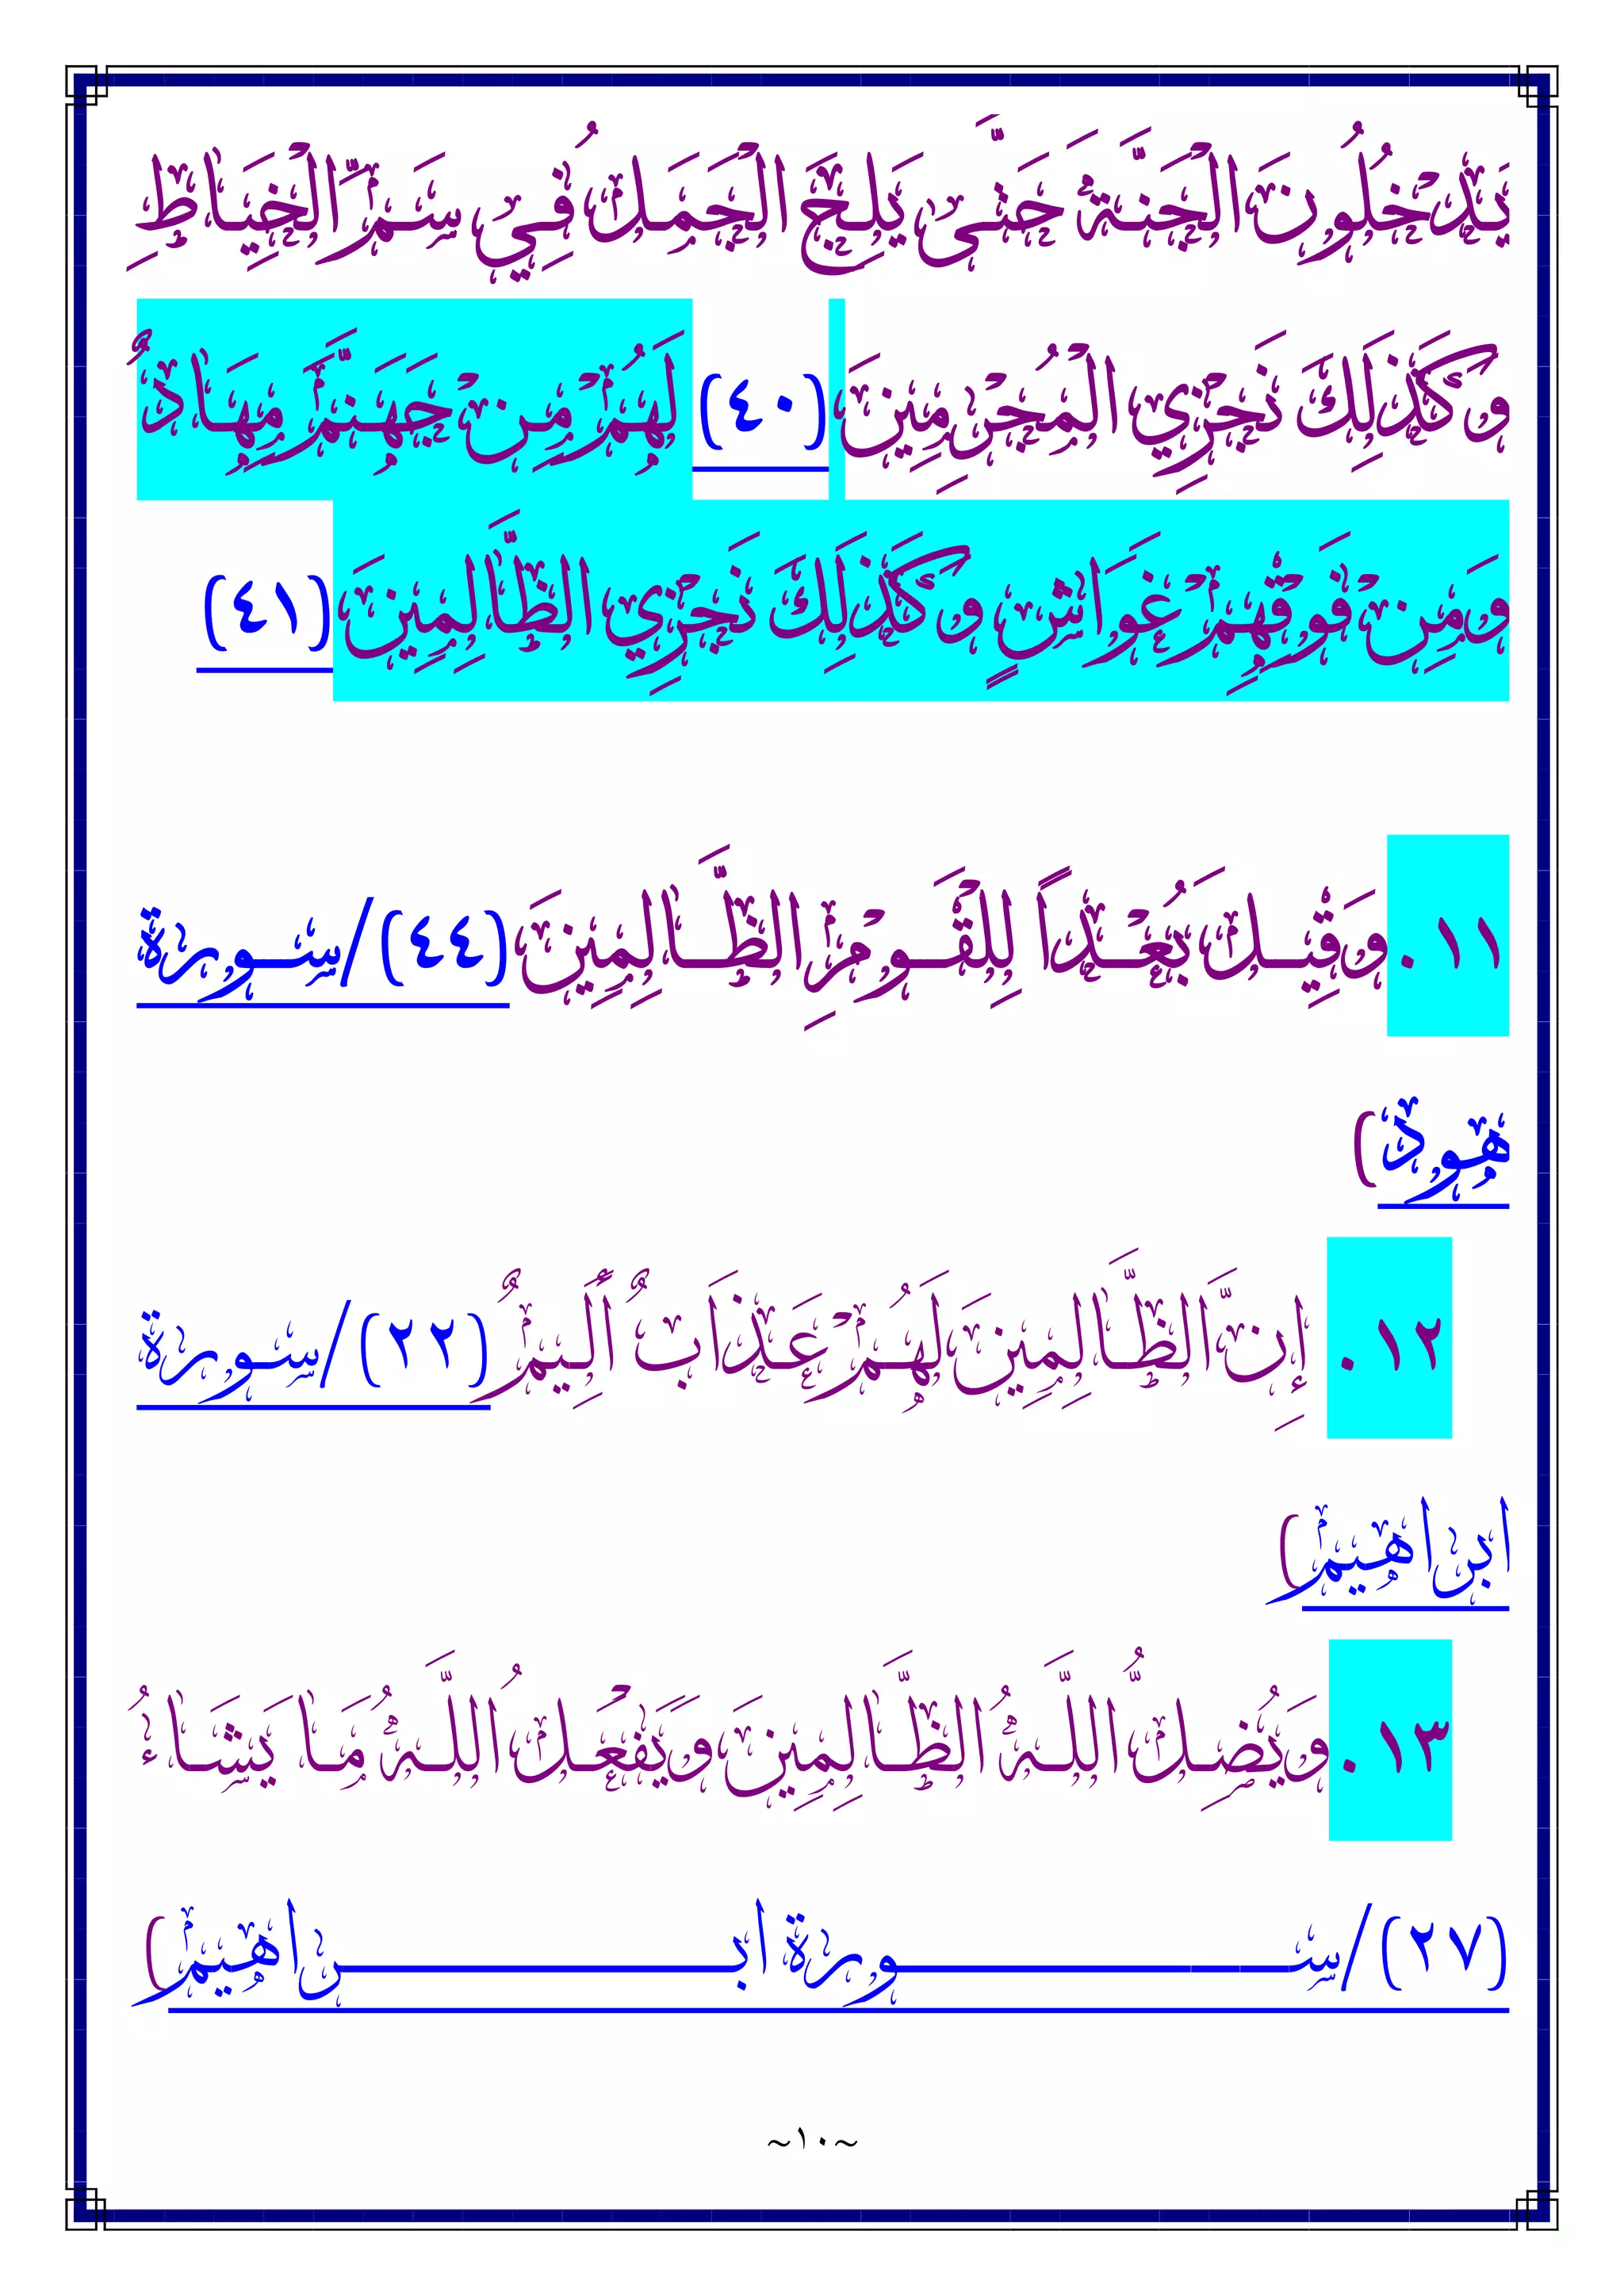 يَدْخُلُونَ الْجَنَّةَ حَتَّى يَلِجَ الْجَمَلُ فِي سَمِّ الْخِيَاطِ
وَكَذَلِكَ نَجْزِي الْمُجْرِمِينَ (٤٠) لَهُمْ مِنْ جَهَنَّمَ مِهَادٌ
وَمِنْ فَوْقِهِمْ غَوَاشٍ وَكَذَلِكَ نَجْزِي الظَّالِمِينَ (٤١)
١١. وَقِيلَ بُعْدًا لِلْقَوْمِ الظَّالِمِينَ (٤٤)/سورة
هود)
١٢. إِنَّ الظَّالِمِينَ لَهُمْ عَذَابٌ أَلِيمٌ (٢٢)/سورة
ابراهيم)
١٣. وَيُضِلُّ اللَّهُ الظَّالِمِينَ وَيَفْعَلُ اللَّهُ مَا يَشَاءُ
(٢٧)/سورة ابراهيم)
~١٠~